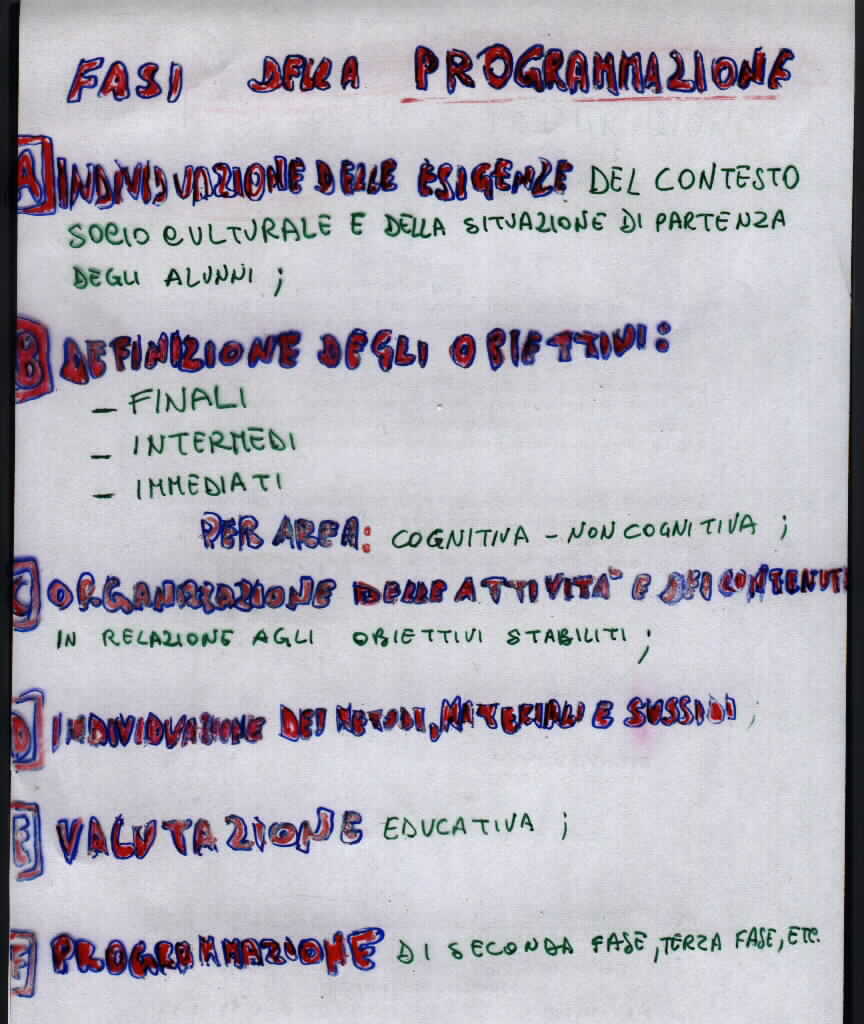 FASI DELLA PROGRAMMAZIONE
A INDIVIDUAZIONE DELLE ESIGENZE DEL CONTESTO
SOCIO CULTURALE E DELLA SITUAZIONE DI PARTENZA
DEGLI ALUNNI ;
B DEFINIZIONE DEGLI OBIETTIVI :
– FINALI
– INTERMEDI
– IMMEDIATI
PER AREA: COGNITIVA – NON COGNITIVA ;
C ORGANIZZAZIONE DELLE ATTIVITA' E DEI CONTENUTI
IN RELAZIONE AGLI OBIETTIVI STABILITI ;
D INDIVIDUAZIONE DEI METODI, MATERIALI E SUSSIDI ;
E VALUTAZIONE EDUCATIVA ;
F PROGRAMMAZIONE DI SECONDA FASE, TERZA FASE, ETC.